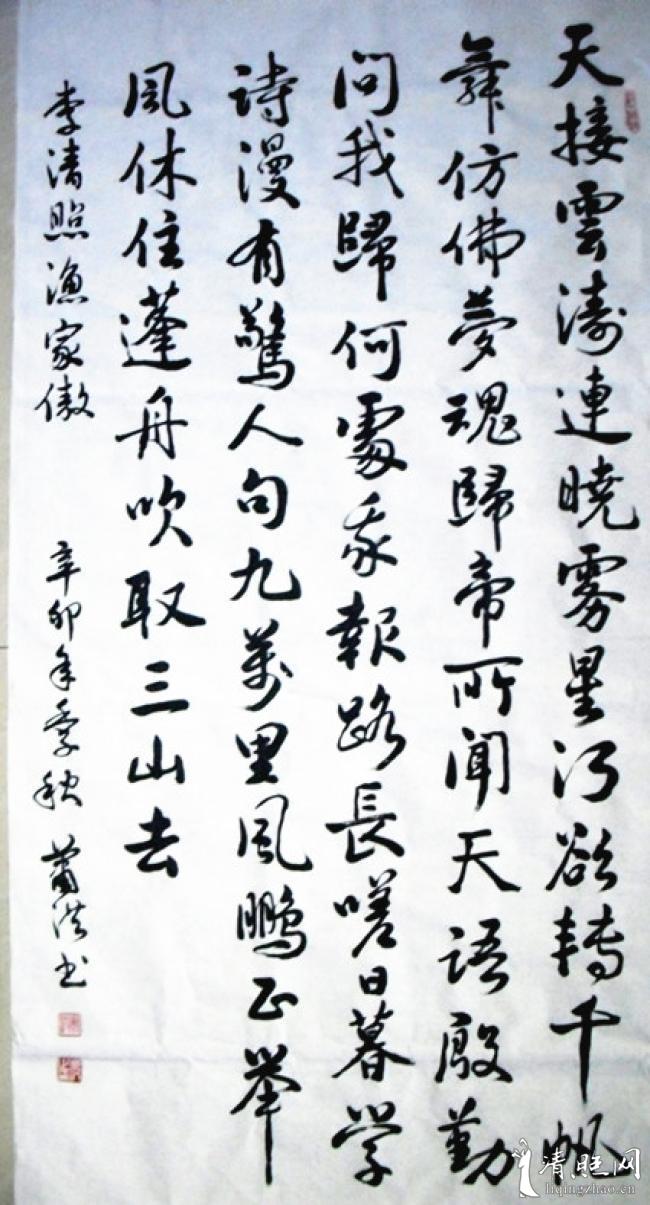 天接雲濤連曉雾星河欲轉千帆
舞仿佛夢魂歸帝所聞天語殷勤
問我歸何處我報路長嗟日暮學
詩漫有驚人句九萬里風鵬正舉
風休住蓬舟吹取三山去
李清照漁家傲
辛卯年季秋 蕭洪书
清照网
liqingzhao.cn